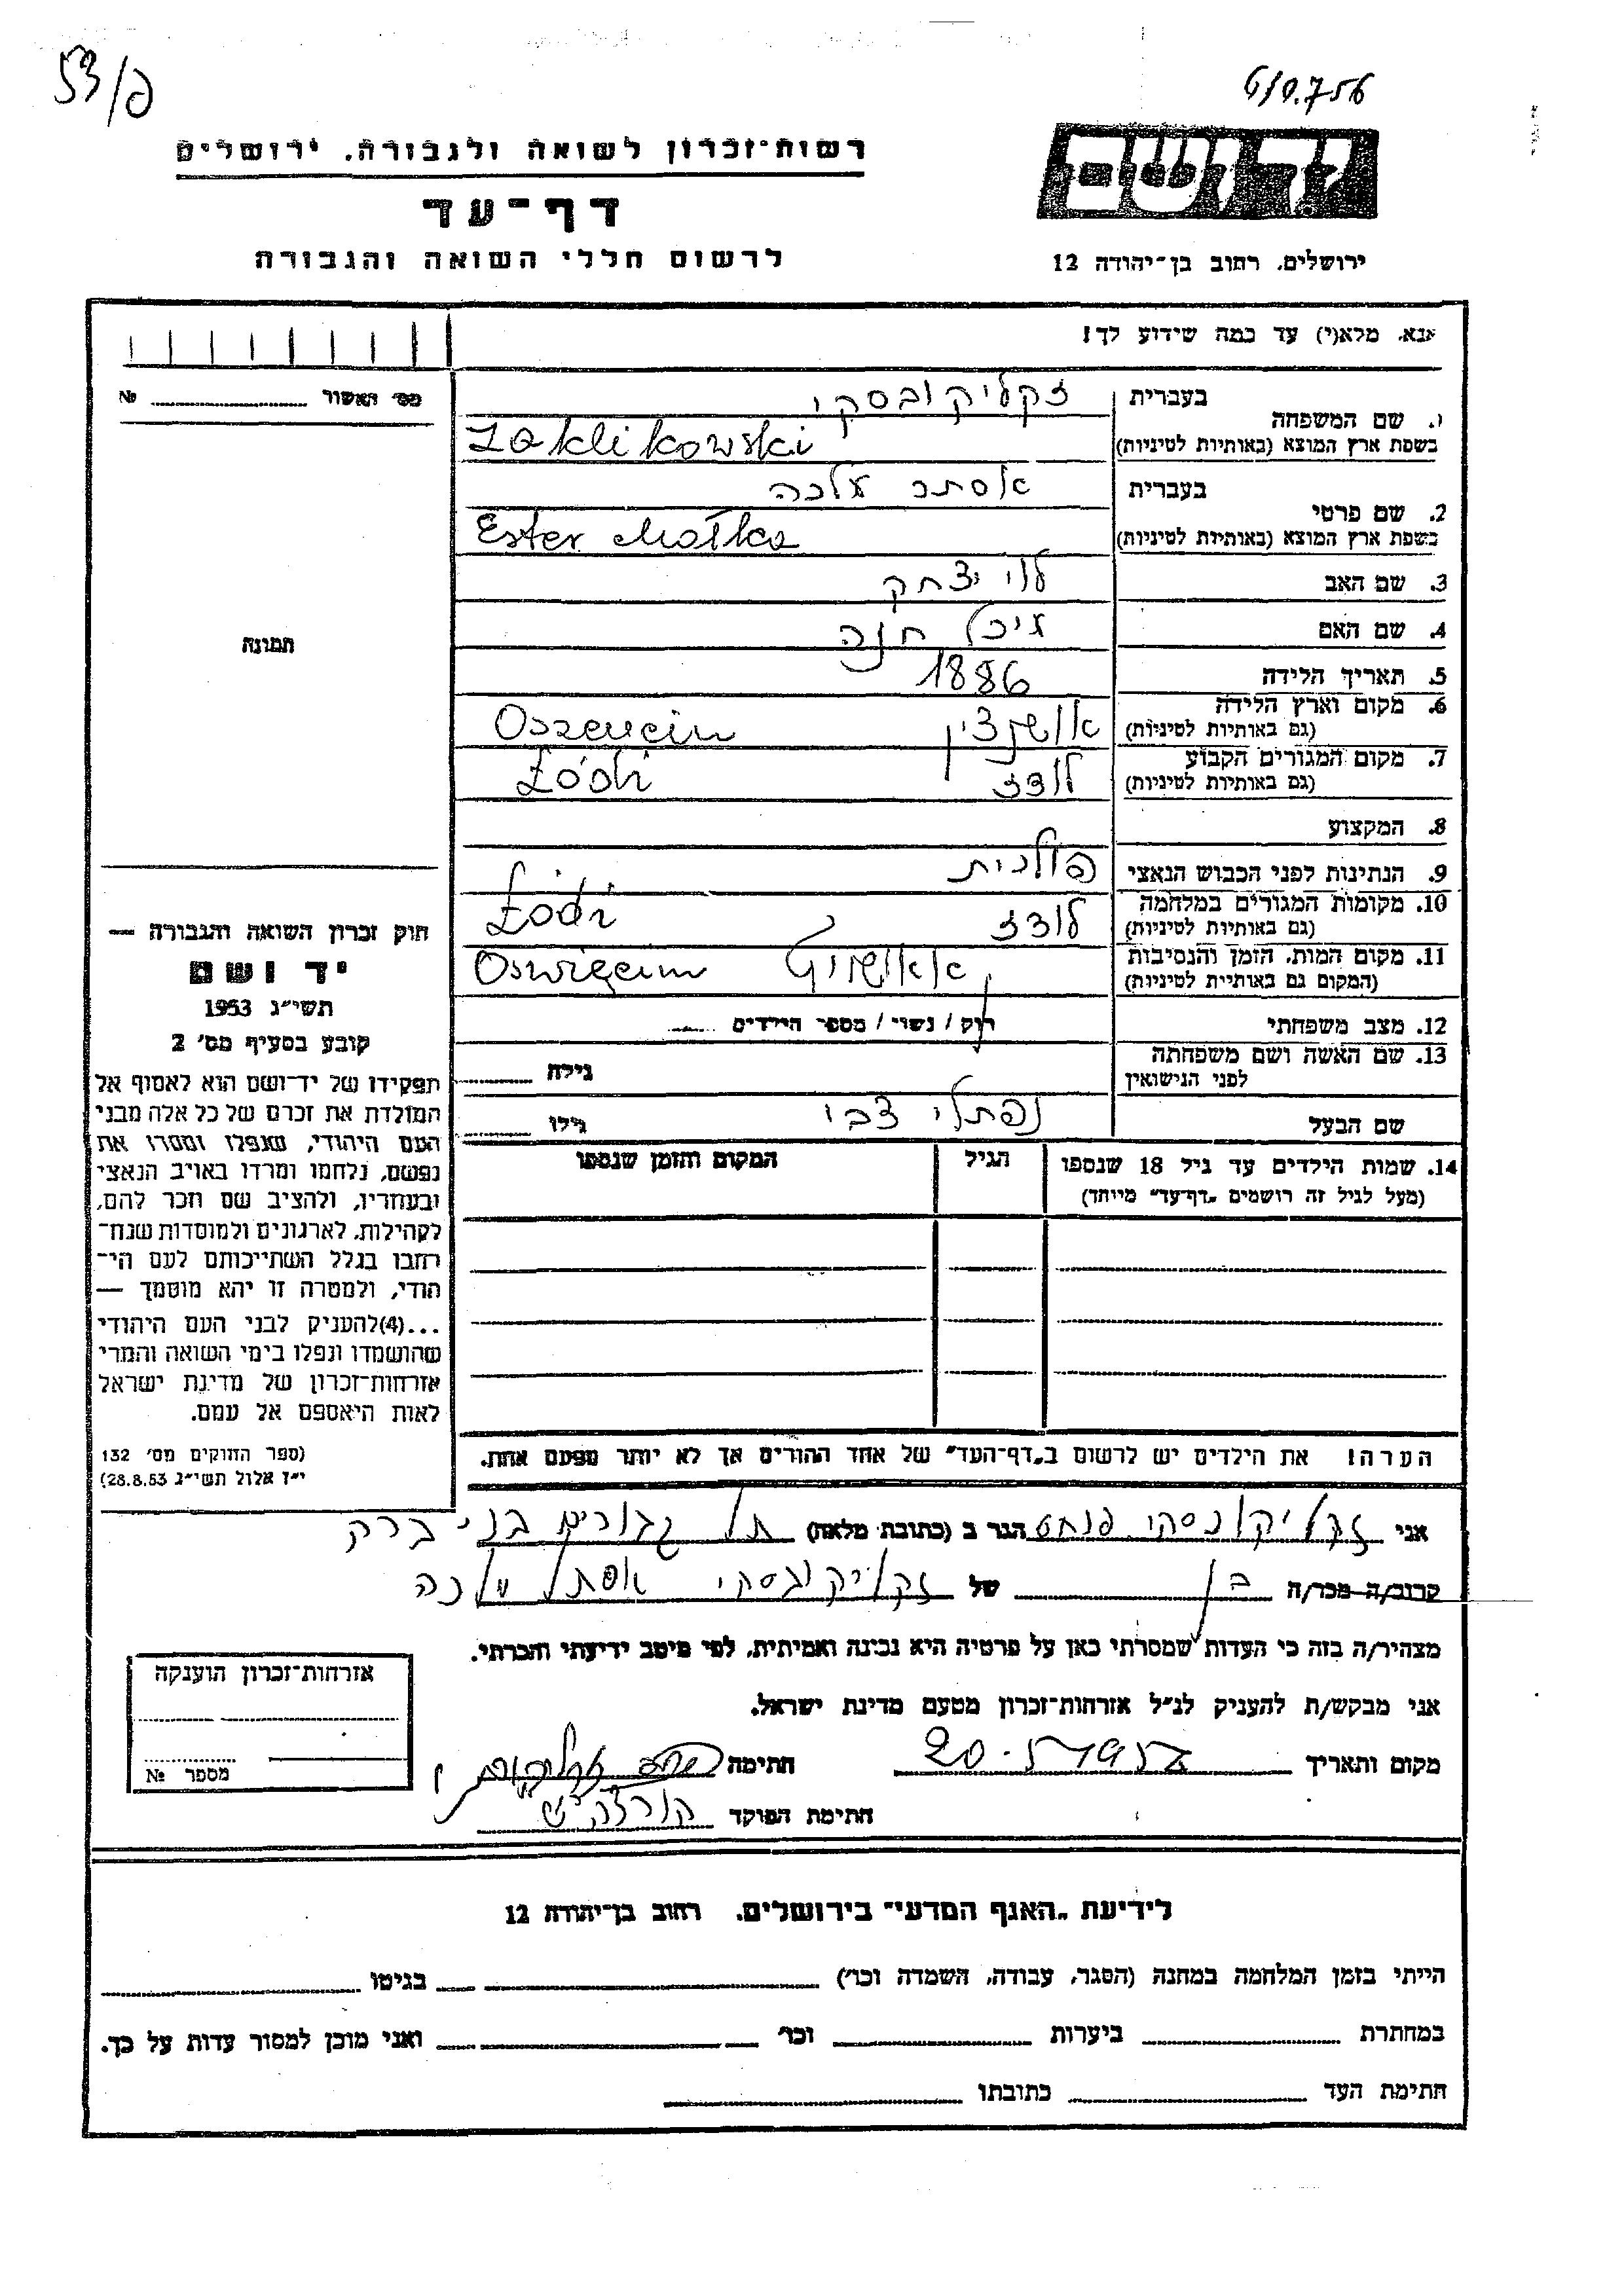 53/פ
רשות-זכרון לשואה ולגבורה, ירושלים
דף-עד
לרשום חללי השואה והגבורה
יד ושם
ירושלים, רחוב בן-יהודה 12
אנא, מלא(י) עד כמה שידוע לך!
מס' האשור № ........
1. שם המשפחה
בעברית זקליקובסקי
בשפת ארץ המוצא (באותיות לטיניות) Zaklikowski
2. שם פרטי
בעברית אסתר מלכה
בשפת ארץ המוצא (באותיות לטיניות) Ester Małka
3. שם האב לוי יצחק
4. שם האם מיכל חנה
5. תאריך הלידה 1886
6. מקום וארץ הלידה
(גם באותיות לטיניות) Oszencin
7. מקום המגורים הקבוע
(גם באותיות לטיניות) לודז Łódź
8. המקצוע
9. הנתינות לפני הכבוש הנאצי פולנית
10. מקומות המגורים במלחמה
(גם באותיות לטיניות) לודז Łódź
11. מקום המות, הזמן והנסיבות
(המקום גם באותיות לטיניות) Oswięcim
12. מצב משפחתי רוק / נשוי / מספר הילדים ........
13. שם האשה ושם משפחתה
לפני הנישואין גילה ........
שם הבעל נפתלי צבי גילו ........
14. שמות הילדים עד גיל 18 שנספו
(מעל לגיל זה רושמים „דף-עד" מיוחד)
הגיל
המקום והזמן שנספו
תמונה
חוק זכרון השואה והגבורה —
יד ושם
תשי"ג 1953
קובע בסעיף מס' 2
תפקידו של יד-ושם הוא לאסוף אל
המולדת את זכרם של כל אלה מבני
העם היהודי, שנפלו ומסרו את
נפשם, נלחמו ומרדו באויב הנאצי
ובעוזריו, ולהציב שם וזכר להם,
לקהילות, לארגונים ולמוסדות שנח-
רבו בגלל השתייכותם לעם הי-
הודי, ולמטרה זו יהא מוסמך —
...(4)להעניק לבני העם היהודי
שהושמדו ונפלו בימי השואה והמרי
אזרחות-זכרון של מדינת ישראל
לאות היאספם אל עמם.
(ספר החוקים מס' 132
י"ז אלול תשי"ג 28.8.53)
הערה! את הילדים יש לרשום ב„דף-העד" של אחד ההורים אך לא יותר מפעם אחת.
אני זקליקובסקי פנחס הגר ב (כתובת מלאה) תל גבורים בני ברק
קרוב/ה מכר/ה בן של זקליקובסקי אסתר מלכה
מצהיר/ה בזה כי העדות שמסרתי כאן על פרטיה היא נכונה ואמיתית, לפי מיטב ידיעתי והכרתי.
אני מבקש/ת להעניק לנ"ל אזרחות-זכרון מטעם מדינת ישראל.
מקום ותאריך חתימה
חתימת הפוקד
אזרחות-זכרון הוענקה
מספר №
לידיעת „האגף המדעי" בירושלים, רחוב בן-יהודה 12
הייתי בזמן המלחמה במחנה (הסגר, עבודה, השמדה וכו') ........ בגיטו ........
במחתרת ........ ביערות ........ וכו' ........ ואני מוכן למסור עדות על כך.
חתימת העד ........ כתובתו ........